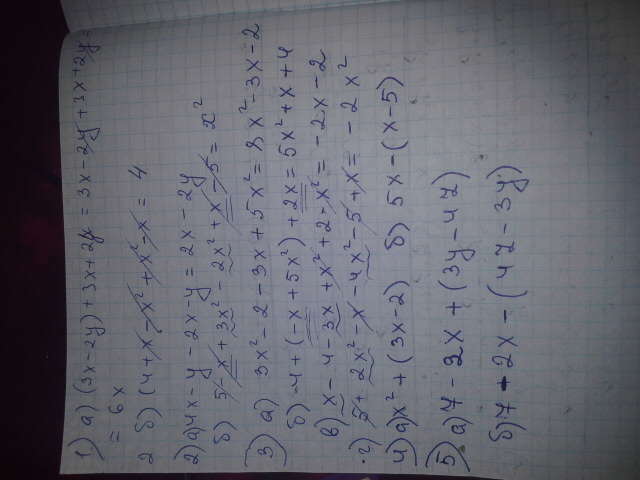 1) а) (3x-2y)+3x+2y = 3x-2y+3x+2y=
= 6x
2 б) (4+x-x²+x²-x = 4
2) а) 4x-y-2x-y = 2x-2y
б) 5-x+3x²-2x²+x-5 = x²
3) а) 3x²-2-3x+5x² = 8x²-3x-2
б) 4+(-x+5x²)+2x = 5x²+x+4
в) x-4-3x+x²+2-x² = -2x-2
г) 5+2x²-x-4x²-5+x = -2x²
4) а) x²+(3x-2) б) 5x-(x-5)
5) а) 7-2x+(3y-4z)
б) 7-2x-(4z-3y)